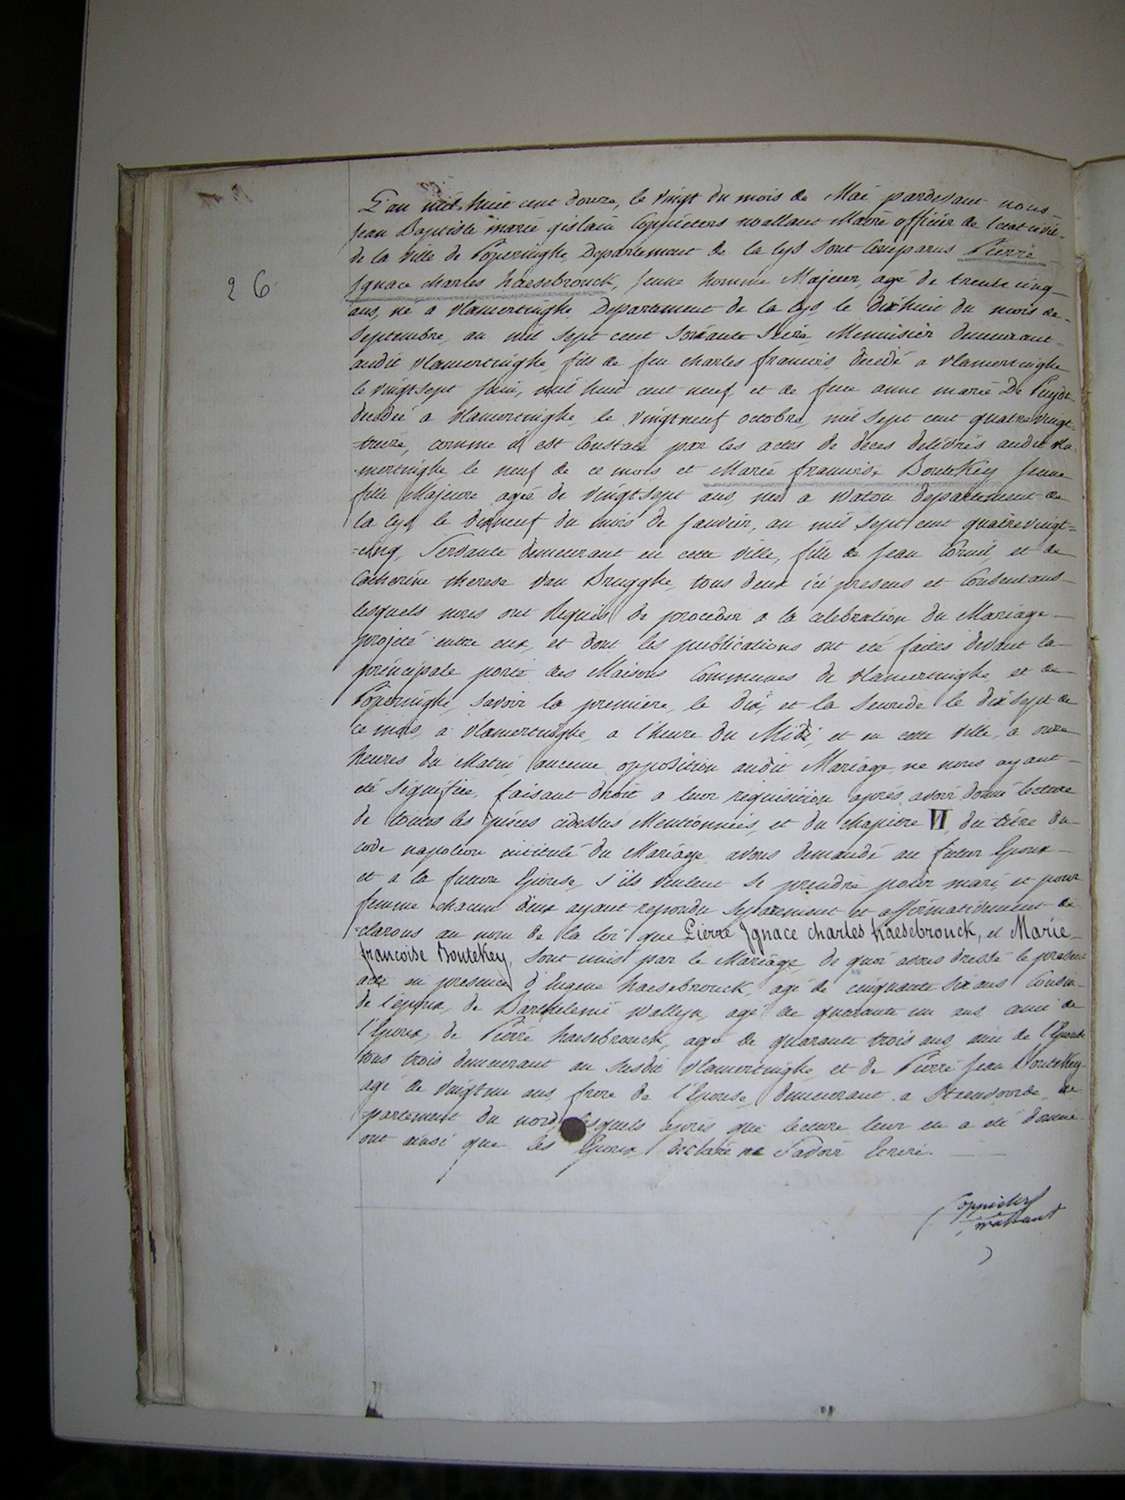 L'an mil huit cent douze, le vingt du mois de Mai pardevant nous
jean Baptiste marie gislain Coppieters wallant Maire officier de l'etat civil
de la ville de Poperinghe, Departement de la Lys sont Comparus Pierre
26
Ignace charles haesebrouck, jeune homme Majeur, agé de trente cinq
ans, né a vlamertinghe Departement de la Lys le dixhuit du mois de
Septembre, an mil sept cent soixante seize, Menuisier demeurant
audit vlamertinghe, fils de feu charles francois, decedé a vlamertinghe
le vingtsept juin, mil huit cent neuf et de feue anne marie De Puydt
decedée a vlamertinghe, le vingtneuf octobre, mil sept cent quatre vingt
treize, comme il est Constaté par les actes de deces delivrés audit vla
mertinghe le neuf de ce mois et Marie francoise Boutekey jeune
fille Majeure agée de vingtsept ans, née a Watou departement de
la Lys, le dixneuf du mois de janvier, an mil sept cent quatrevingt=
=cinq, Servante demeurant en cette ville, fille de jean Corneil, et de
Catherine therese Van Brugghe, tous deux ici presens et Consentans
lesquels nous ont requis de proceder a la celebration du Mariage
projeté entre eux, et dont les publications ont été faites devant la
principale porte des Maisons Communes de vlamertinghe et de
Poperinghe, savoir la premiere, le dix, et la seconde le dixsept de
ce mois, a vlamertinghe, a l'heure du Midi, et en cette ville, a onze
heures du Matin, aucune opposition audit Mariage ne nous ayant
été signifiée, faisant droit a leur requisition, après avoir donné lecture
de toutes les pieces cidessus Mentionnées, et du chapitre VI, du titre du
code napoleon intitulé du Mariage, avons demandé au futur Epoux
et a la future Epouse, s'ils veulent se prendre pour mari, et pour
femme chacun d'eux ayant repondu separement et affirmativement de
clarons au nom de la loi que Pierre Ignace charles haesebrouck, et Marie
francoise Boutekey, sont unis par le Mariage, de quoi avons dressé le present
acte en presence d'Eugene haesebrouck, agé de cinquante six ans Cousin
de l'epoux, de Barthelemi wallyn, agé de quarante un ans, ami de
l'Epoux, de Pierre haesebrouck, agé de quarante trois ans, ami de l'Epouse
tous trois demeurant au susdit vlamertinghe, et de Pierre jean Boutekey
agé de vingtun ans, frere de l'Epouse, demeurant a Steenvoorde, de
partement du nord, lesquels après que lecture leur en a été donné
ont ainsi que les Epoux declaré ne savoir Ecrire.
Coppieters
wallant